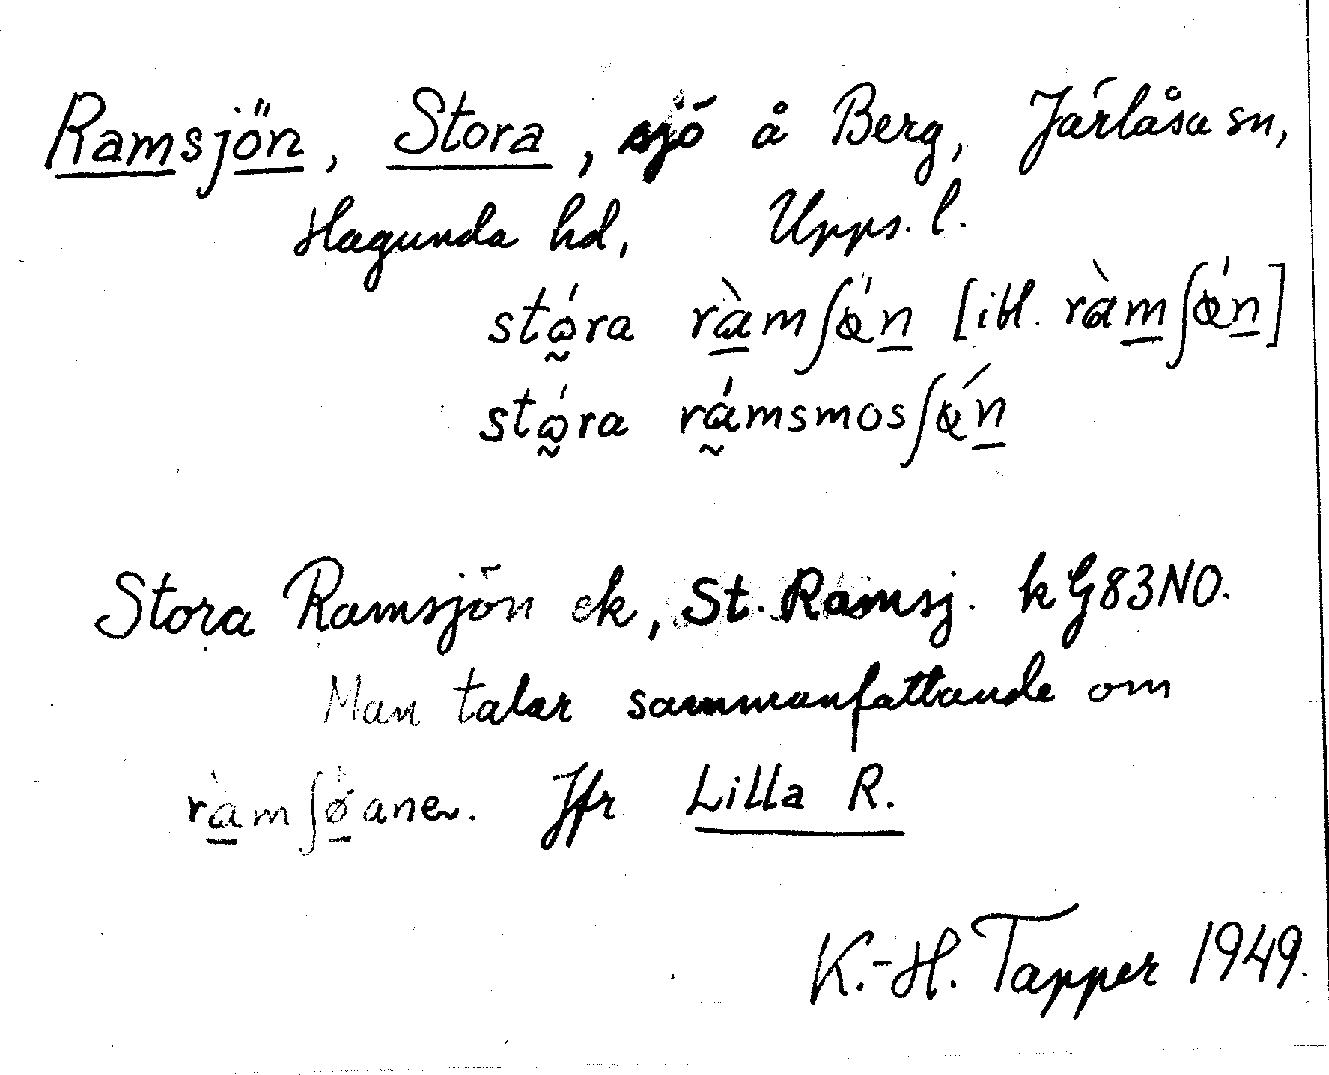 Ramsjön, Stora, sjö å Berg, Järlåsa sn,
Hagunda hd, Upps. l.
stώ̰ra rà̱mʃœ́n̲ [ibl. ràm̲ʃœ́n̲]
stώ̰ra rá̰msmosʃœ́n̲
Stora Ramsjön ek, St. Ramsj. k G83NO.
Man talar sammanfattande om
rà̱mʃø̱̀aner. Jfr Lilla R.
K.-H. Tapper 1949.